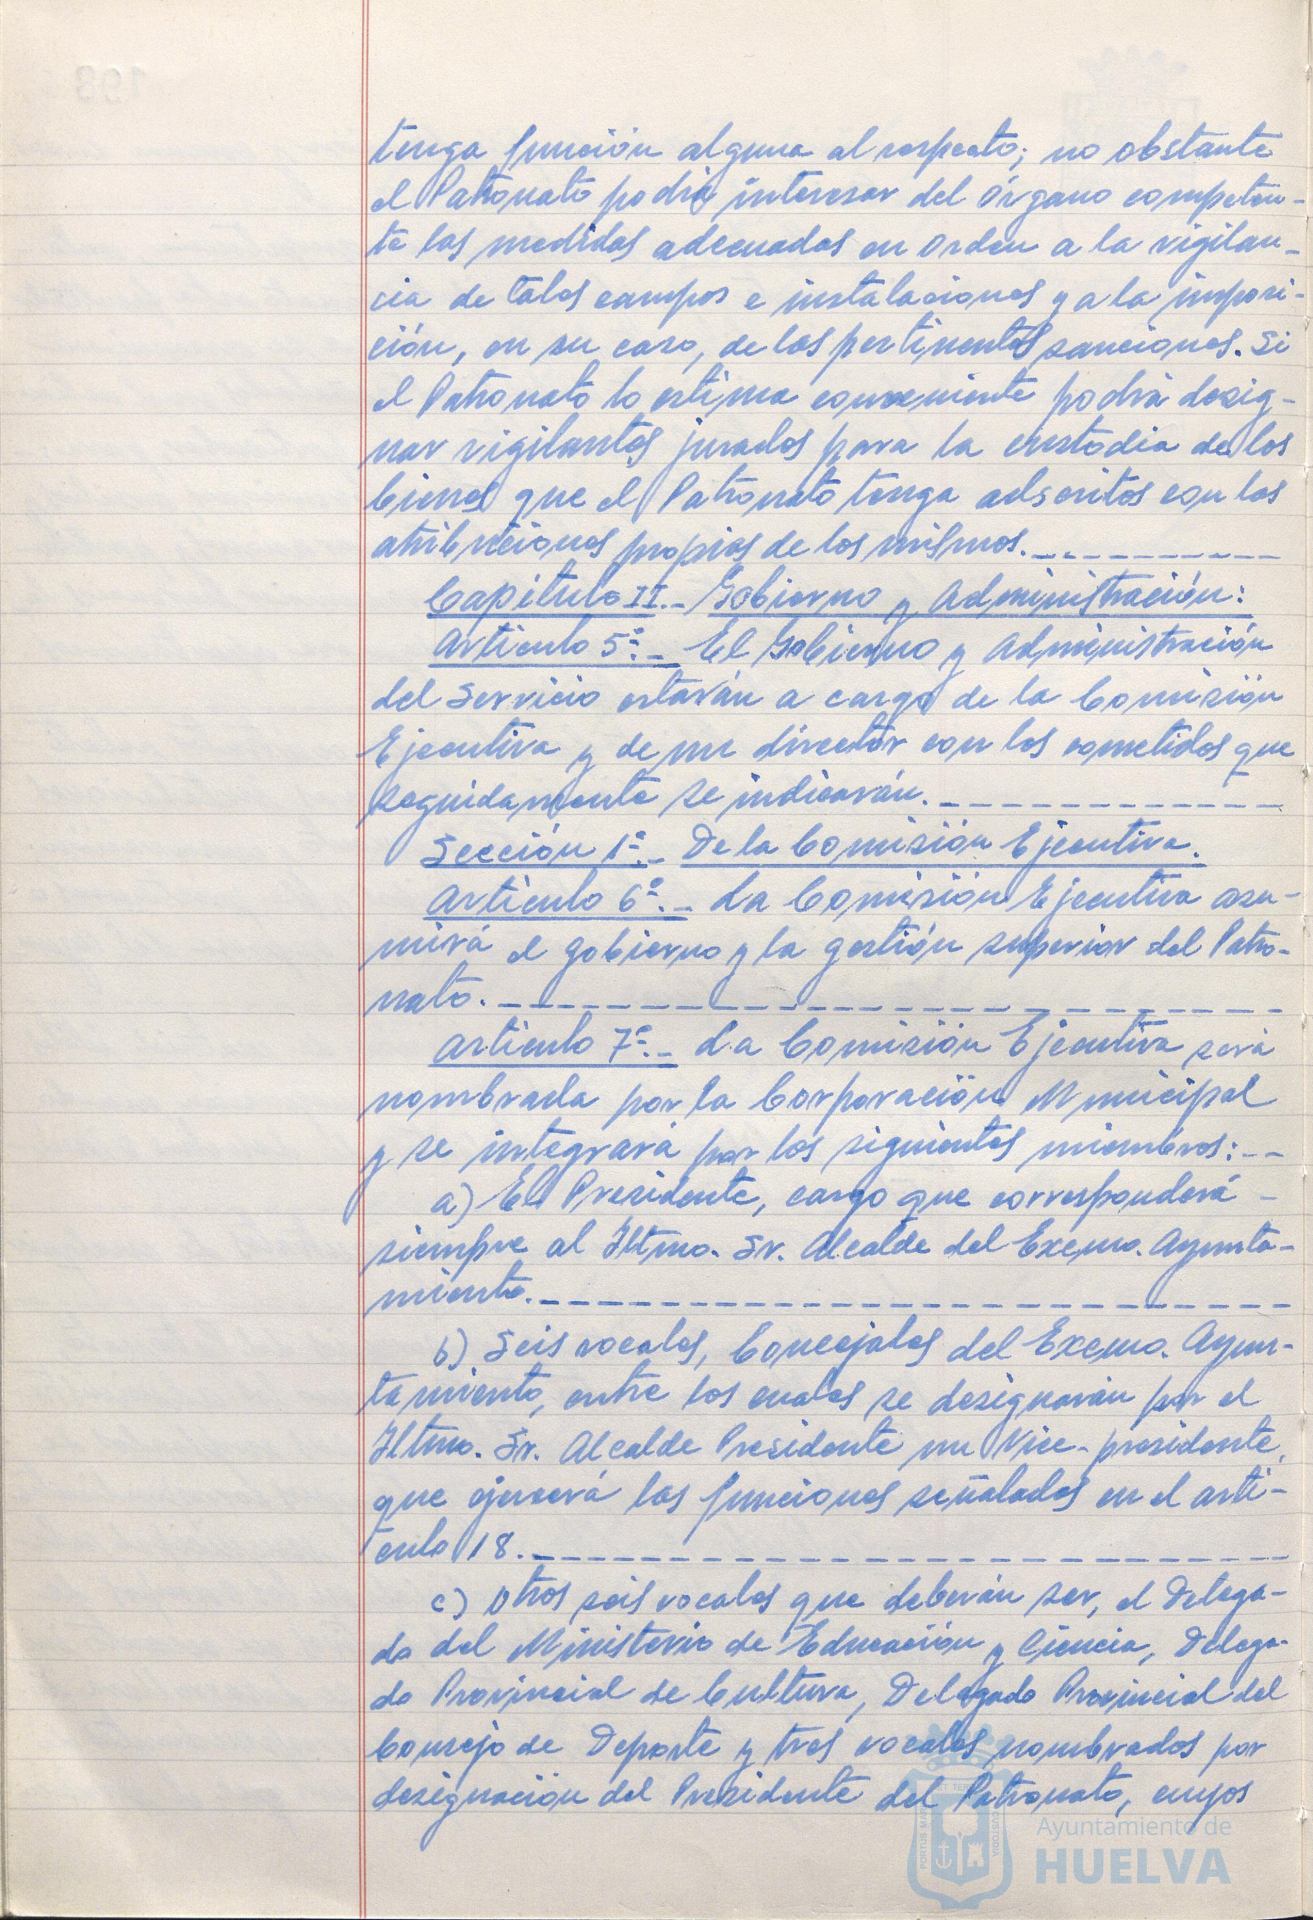 tenga función alguna al respecto; no obstante
el Patronato podrá interesar del Órgano competen-
te las medidas adecuadas en orden a la vigilan-
cia de tales campos e instalaciones y a la imposi-
ción, en su caso, de las pertinentes sanciones. Si
el Patronato lo estima conveniente podrá desig-
nar vigilantes jurados para la custodia de los
bienes que el Patronato tenga adscritos con las
atribuciones propias de los mismos.
Capítulo II.- Gobierno y Administración:
Artículo 5º.- El Gobierno y Administración
del Servicio estarán a cargo de la Comisión
Ejecutiva y de un director con los cometidos que
seguidamente se indicarán.
Sección 1ª.- De la Comisión Ejecutiva.
Artículo 6º.- La Comisión Ejecutiva asu-
mirá el gobierno y la gestión superior del Patro-
nato.
Artículo 7º.- La Comisión Ejecutiva será
nombrada por la Corporación Municipal
y se integrará por los siguientes miembros:--
a) El Presidente, cargo que corresponderá -
siempre al Iltmo. Sr. Alcalde del Excmo. Ayunta-
miento.
b) Seis vocales, Concejales del Excmo. Ayun-
tamiento, entre los cuales se designarán por el
Iltmo. Sr. Alcalde Presidente un Vice-presidente,
que ejercerá las funciones señaladas en el artí-
culo 18.
c) Otros seis vocales que deberán ser, el Delega-
do del Ministerio de Educación y Ciencia, Delega-
do Provincial de Cultura, Delegado Provincial del
Consejo de Deporte y tres vocales nombrados por
designación del Presidente del Patronato, cuyos
Ayuntamiento de
HUELVA